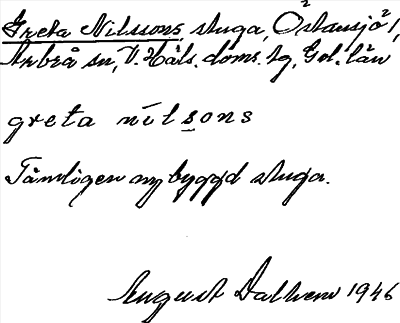 Greta Nilssons stuga, Östansjö 1,
Arbrå sn, V. Häls. doms. tg, Gvl. län
greta nilsons
Tämligen nybyggd stuga.
August Dalhem 1946